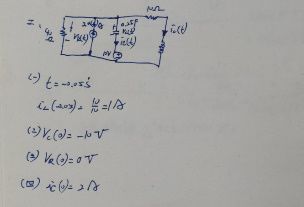 10Ω
0.25F
Vc(t)
ic(t)
iL(t)
10V
(一) t=-0.05s
iL(-0.05)=10/10=1A
(2) Vc(0)=-10V
(3) VR(0)=0V
(四) ic(0)=2A